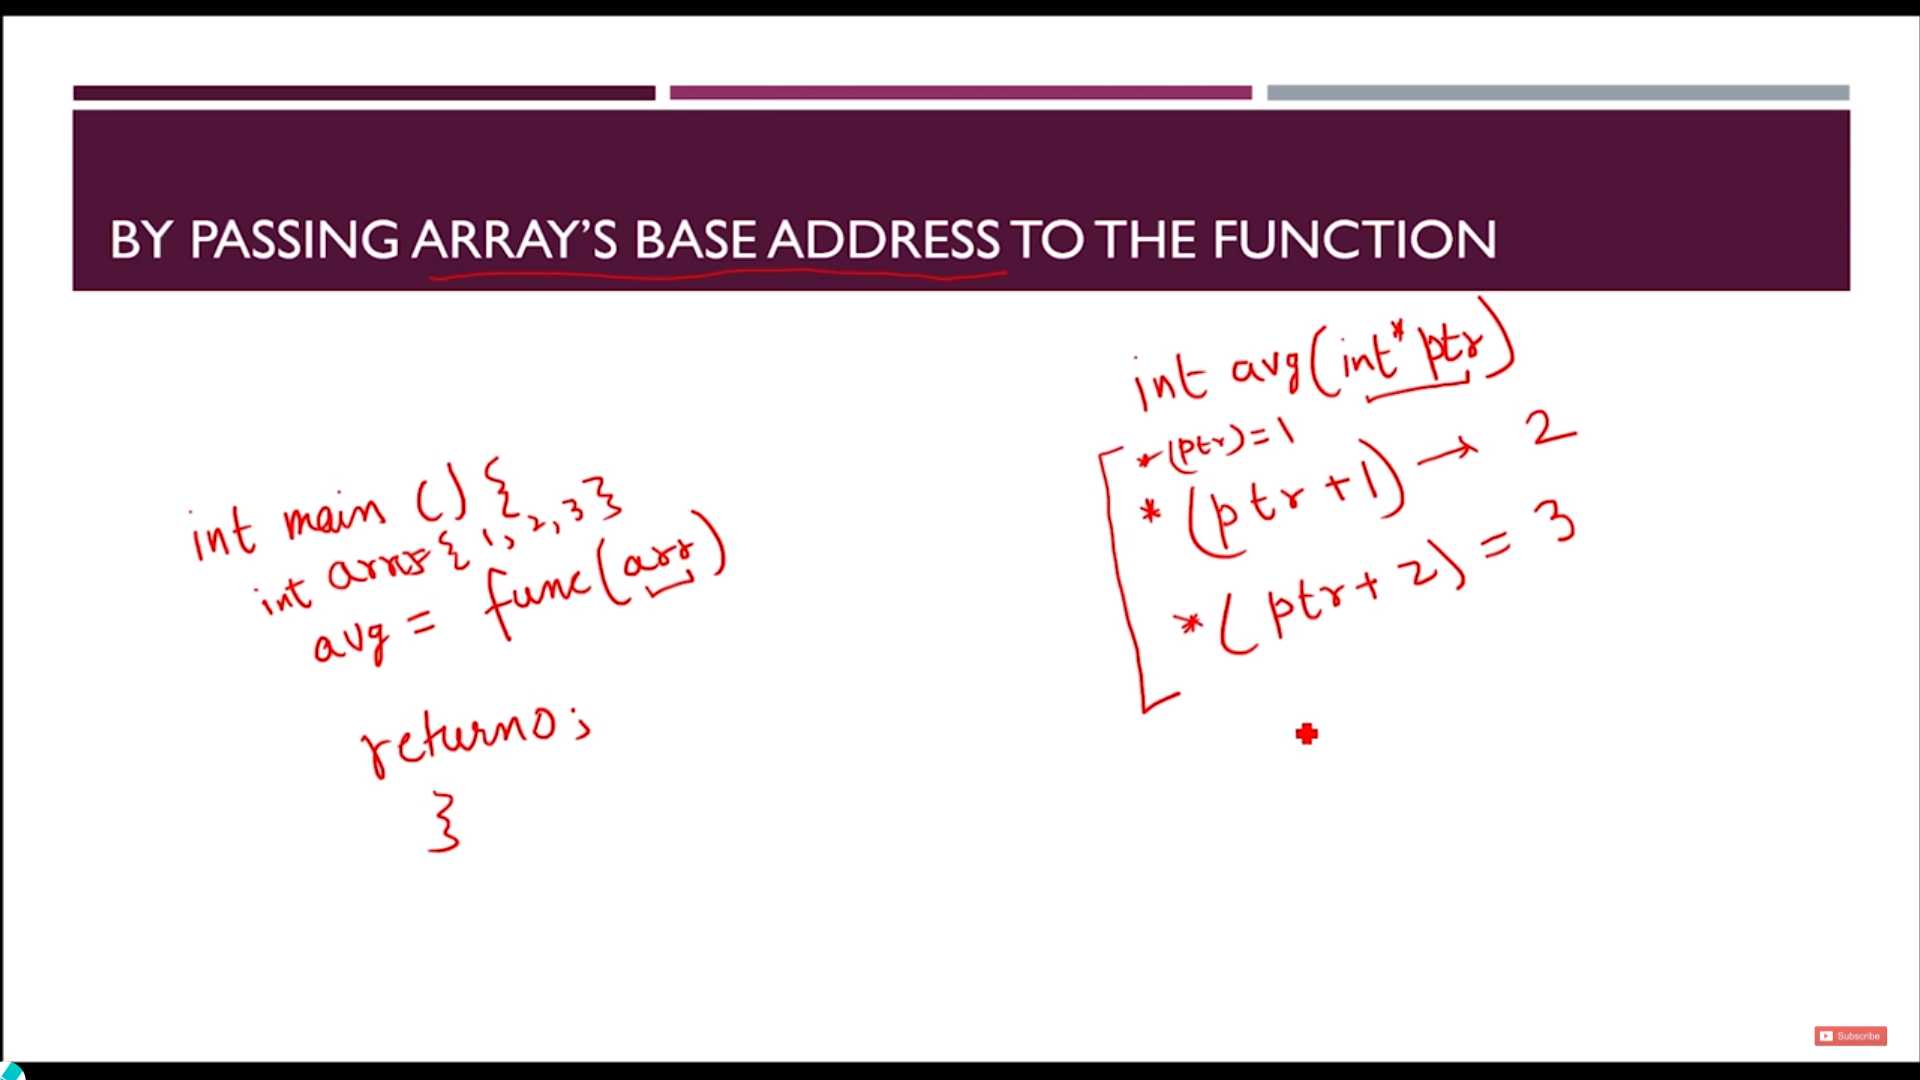 BY PASSING ARRAY'S BASE ADDRESS TO THE FUNCTION
int main () {
int arr {1, 2, 3}
avg = func(arr)
return 0;
}
int avg(int* ptr)
*(ptr)=1
*(ptr+1) → 2
*(ptr+2) = 3
Subscribe